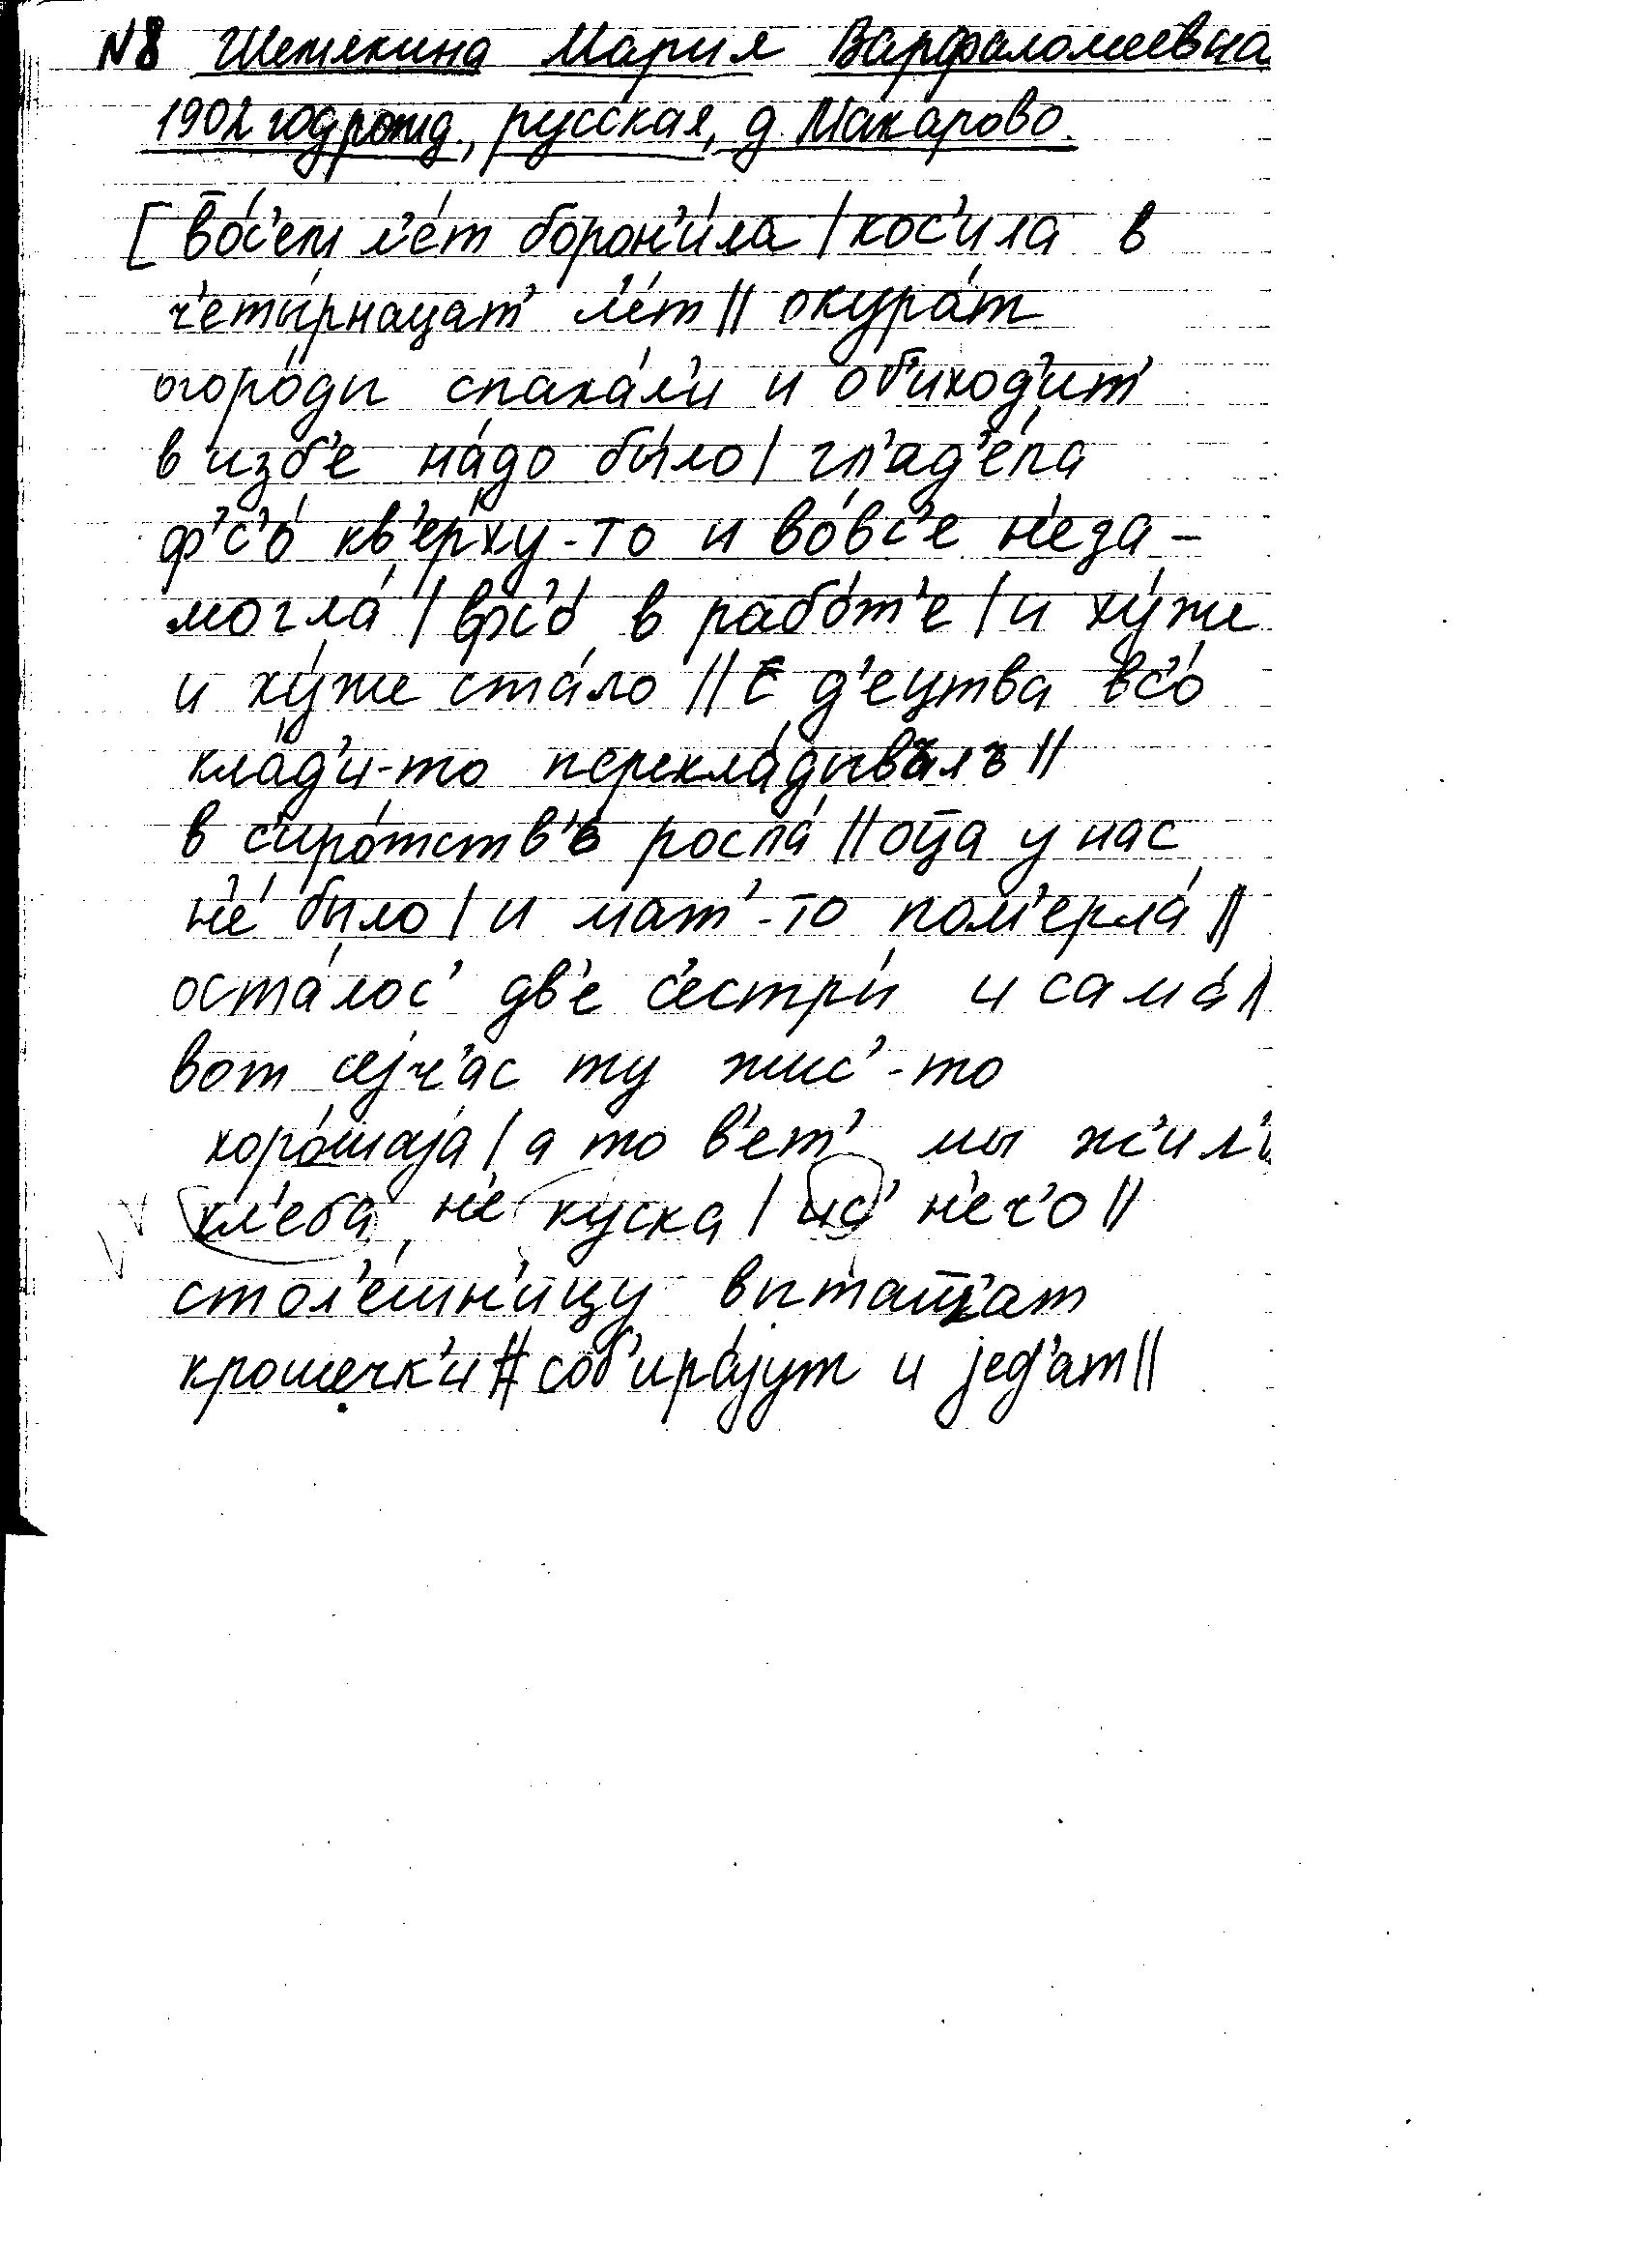 N8 Шемякина Мария Варфаломеевна
1902 год рожд., русская, д. Макарово.
[ во́с'ем л'е́т борон'и́ла / кос'ила в
ч'еты́рнацат' л'е́т // окура́т
огоро́ды спаха́л'и и об'иход'ит'
в изб'е на́до бы́ло / гл'ад'е́ла
ф'с'о́ кв'ерху́-то и во́вс'е н'еза-
могла́ / фс'о́ в рабо́т'е / и ху́же
и ху́же ста́ло // С д'ецтва вс'о́
кла́д'и-то перекла́дывълъ //
в с'иро́тств'ь росла́ // оца у нас
н'е́ было / и мат'-то пом'ерла́ //
оста́лос' дв'е с'естры́ и сама́ /
вот сејч'ас ту жис'-то
хоро́шаја / а то в'ет' мы жил'и
хл'еба н'е куска / ис' н'еч'о //
стол'е́шн'ицу выташшат
крошечк'и // соб'ира́јут и јед'ат //